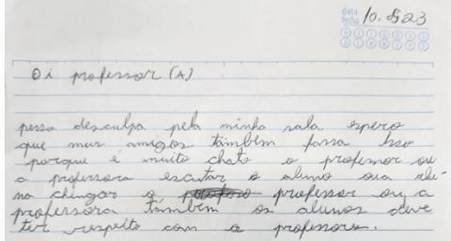 data 10.8.23
Oi professor (A)
pesso desculpa pela minha sala espero
que meus amigos também fassa isso
porque é muito chato o professor ou
a professora escutar o aluno ou alu-
na chingar o professor ou a
professora também os alunos deve
ter respeito com o professores.